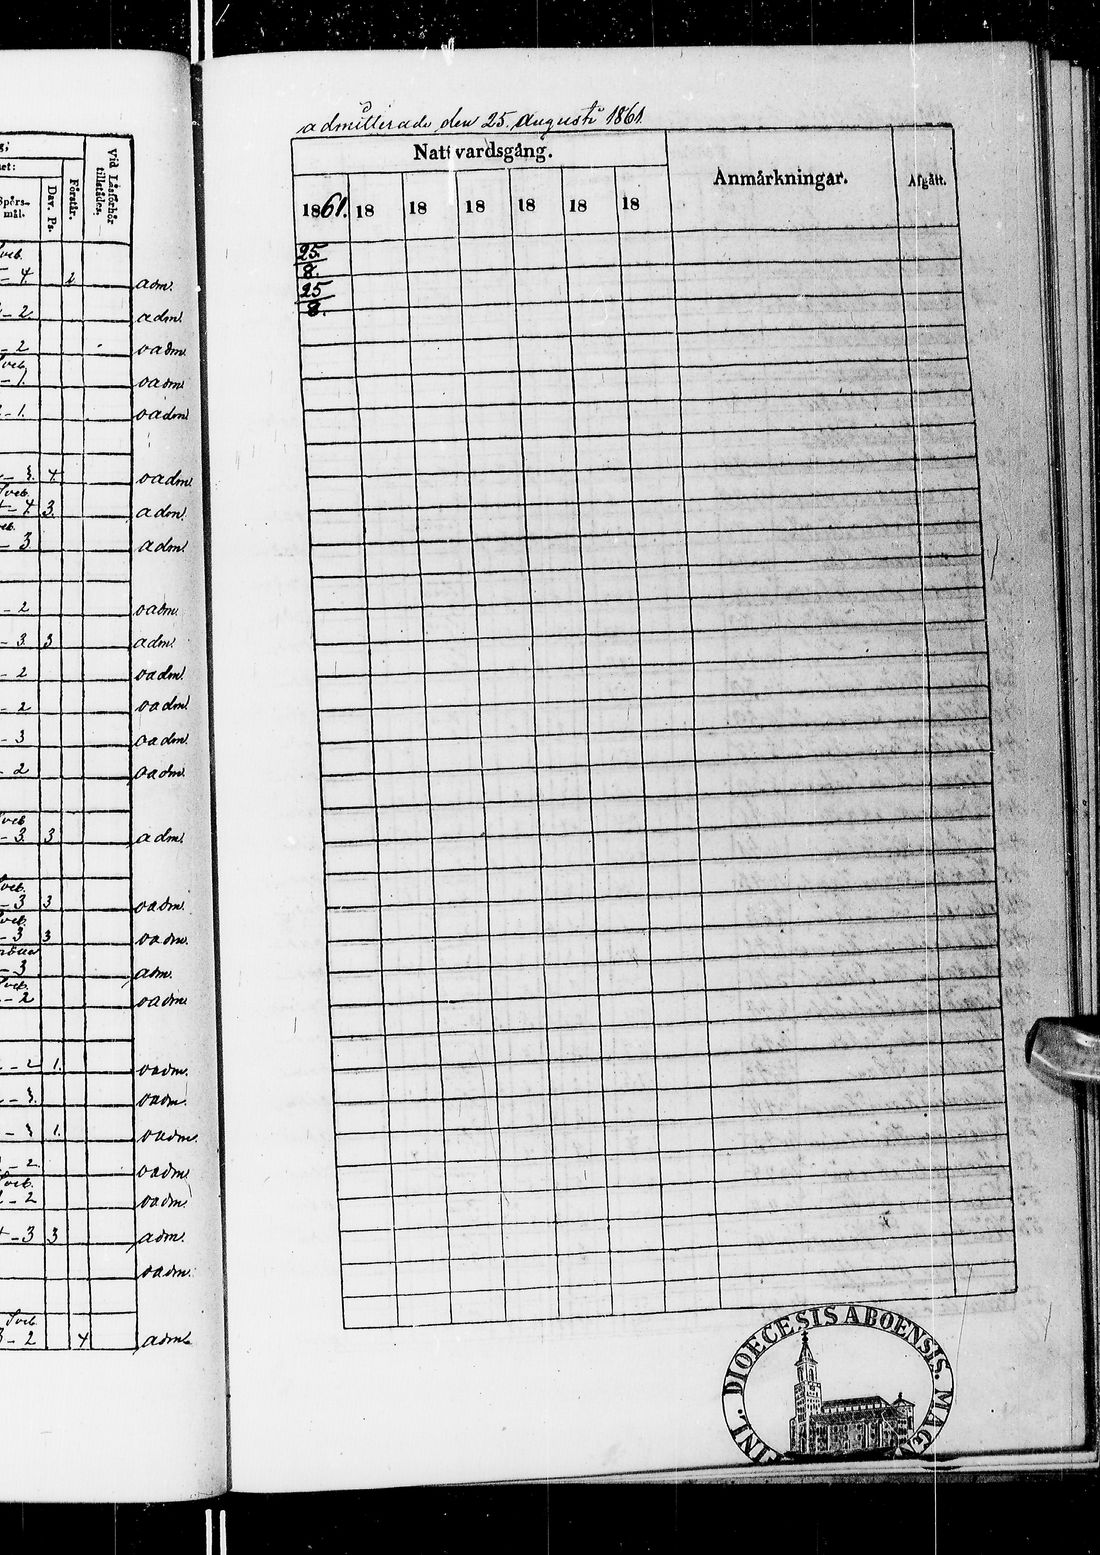 admitterade den 25. Augusti 1861.
Nattvardsgång.
Anmärkningar.
Afgått.
1861. 18 18 18 18 18 18
25.
8.
25
8.
Vid Läsförhör
tillstädes.
Förstår.
Dav. Ps.
Spörs-
mål.
Sveb.
- 4. adm.
- 2. adm.
- 2 oadm.
Sveb.
- 1. oadm.
- 1. oadm.
- 3. 4 oadm.
Sveb.
- 4. 3. adm.
- 3 adm.
- 2 oadm.
- 3. 3 adm.
- 2 oadm.
- 2 oadm.
- 3 oadm.
- 2 oadm.
Sveb
- 3. 3 adm.
Sveb.
- 3 3 oadm.
Sveb.
- 3 3 oadm.
- 3 adm.
Sveb.
- 2 oadm.
- 2 1. oadm.
- 3. oadm.
- 3 1. oadm.
- 2. oadm.
Sveb.
- 2 oadm.
- 3 3 adm.
oadm.
Sveb
3 - 2 4 adm.
FINL. DIOECESIS ABOENSIS. MAGN